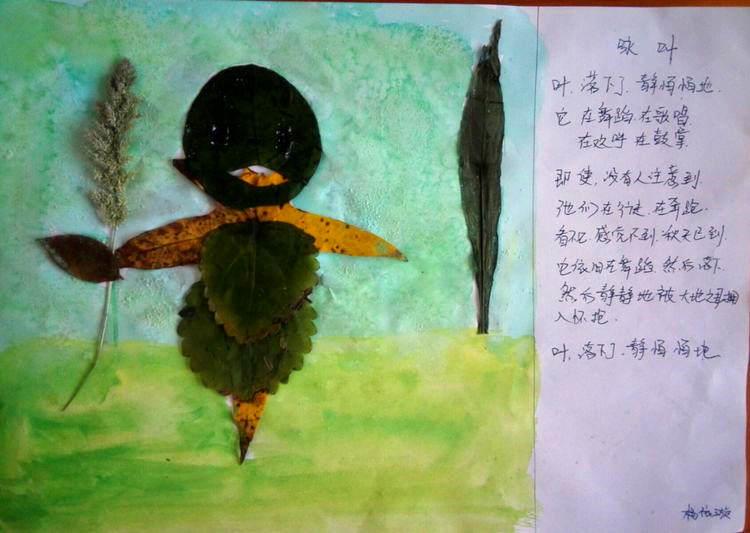 咏 叶
叶，落下了，静悄悄地.
它在舞蹈.在歌唱.
在欢呼 在鼓掌.
即使，没有人注意到.
他们在行走.在奔跑.
看不见.感觉不到.秋天已到.
它依旧在舞蹈.然后落下.
然后静静地被大地之母拥
入怀抱.
叶.落下了.静悄悄地
杨